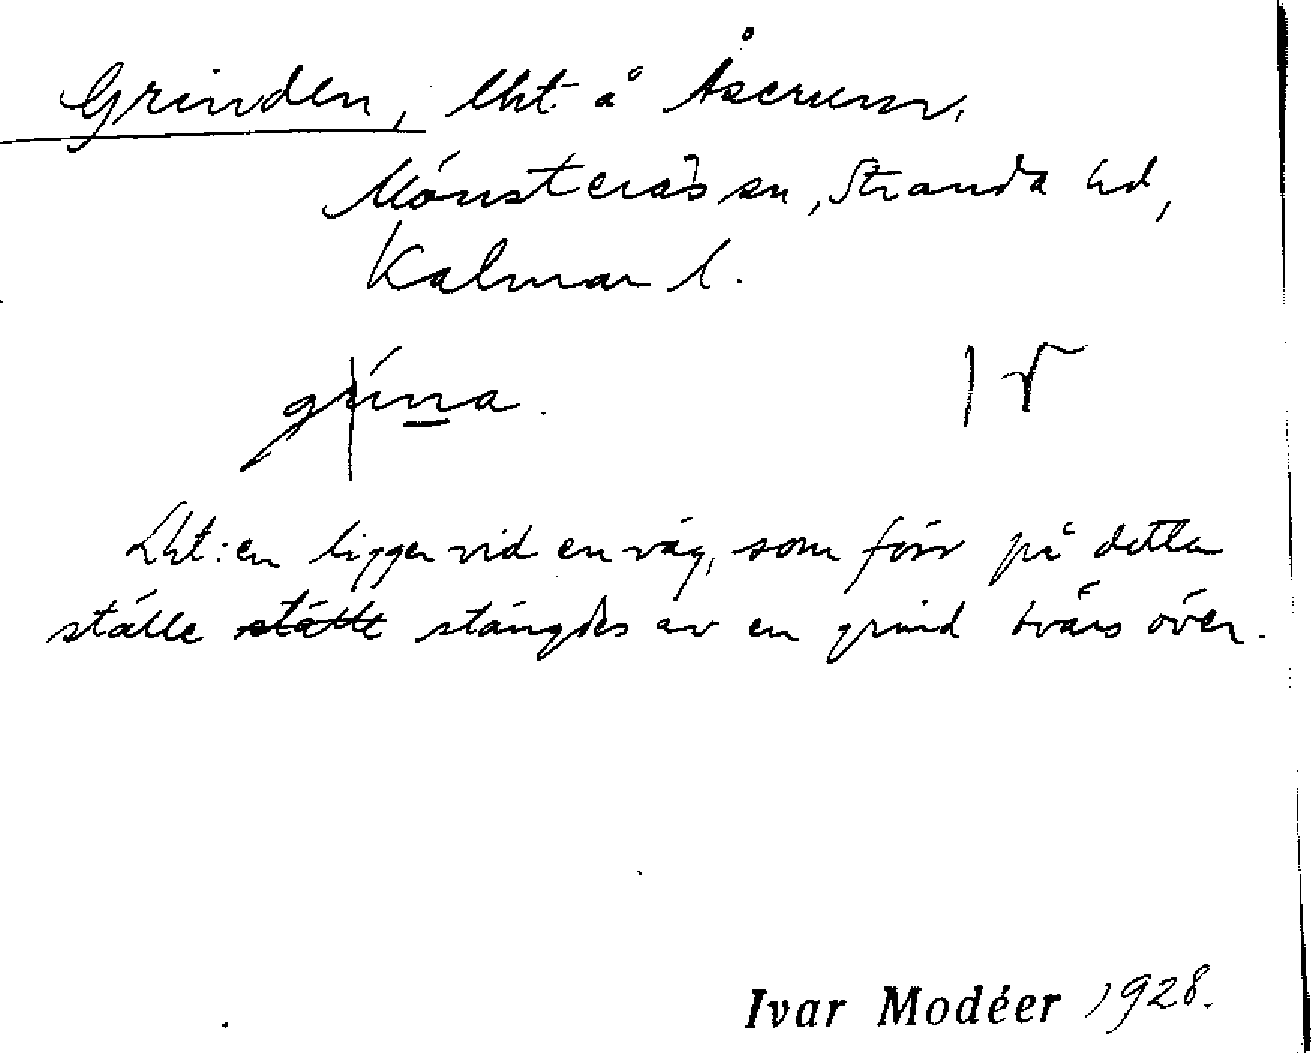 Grinden, lht. å Åserum.
Mönsterås sn, Stranda hd,
Kalmar l.
grina.
Lht:en ligger vid en väg, som förr på detta
ställe stätte stängdes av en grind tvärs över.
Ivar Modéer 1928.